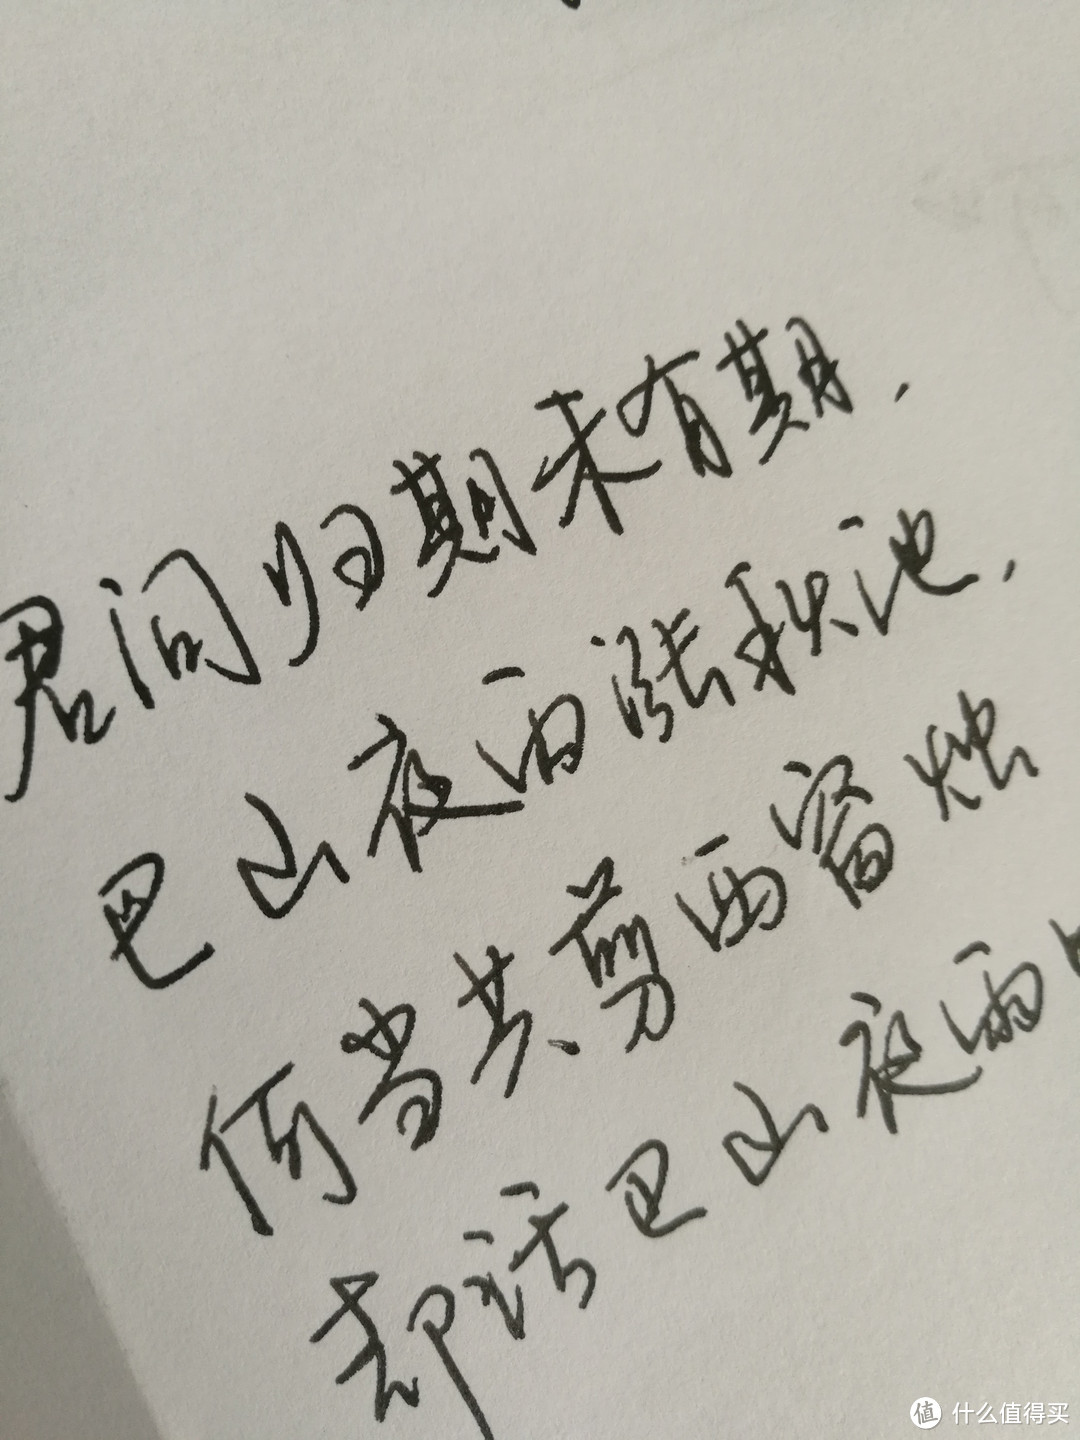 君问归期未有期，
巴山夜雨涨秋池，
何当共剪西窗烛
却话巴山夜雨
值 什么值得买